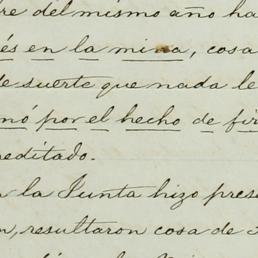 re del mismo año ha
és en la mina, cosa
de suerte que nada le
nó por el hecho de fir
reditado.
la Junta hizo pres
n, resultaron cosa de